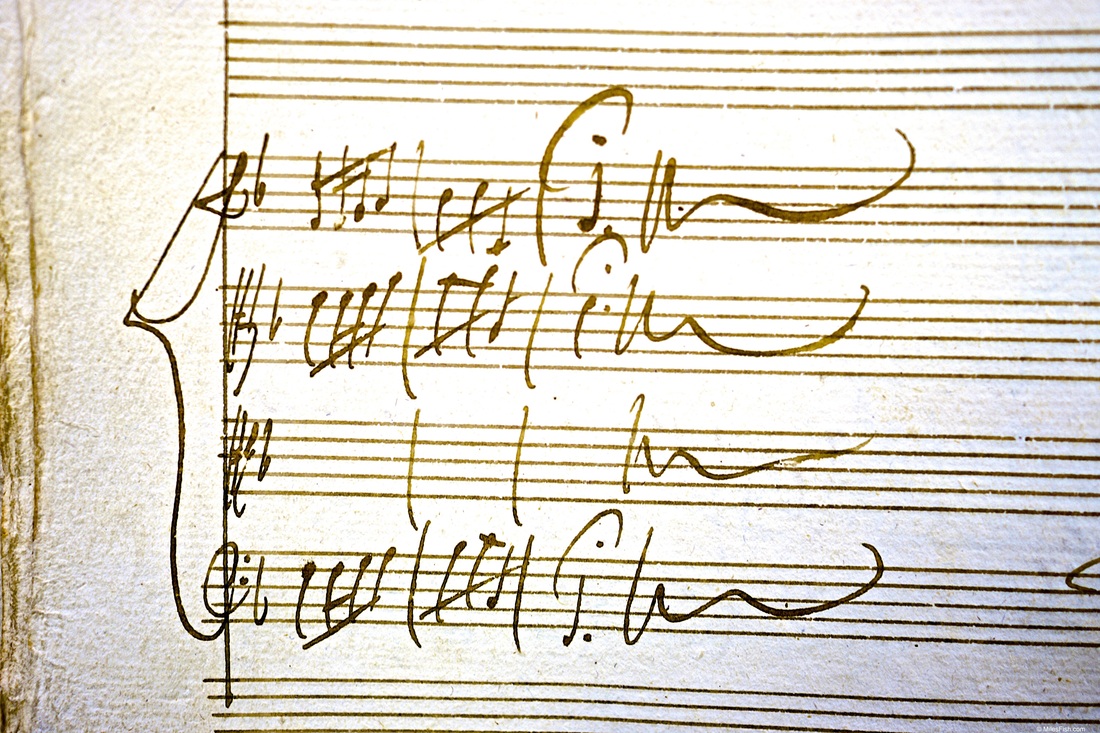 © MilesFish.com